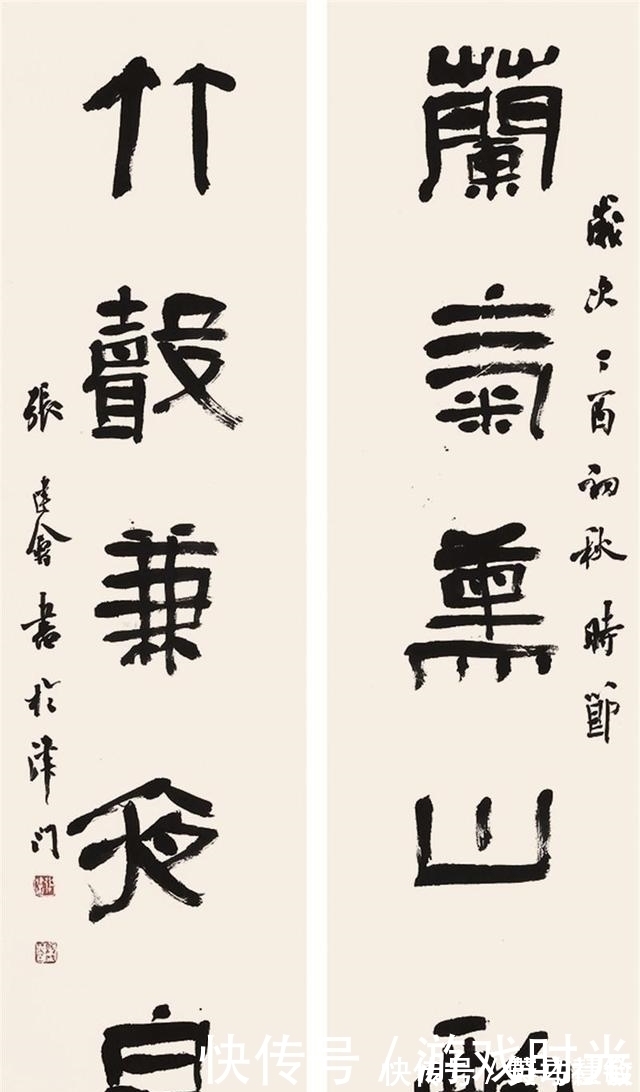 歲次丁酉初秋時節
蘭氣熏山
竹聲兼夜
張建會書於津門
快传号 / 游戏时光
快传号 /